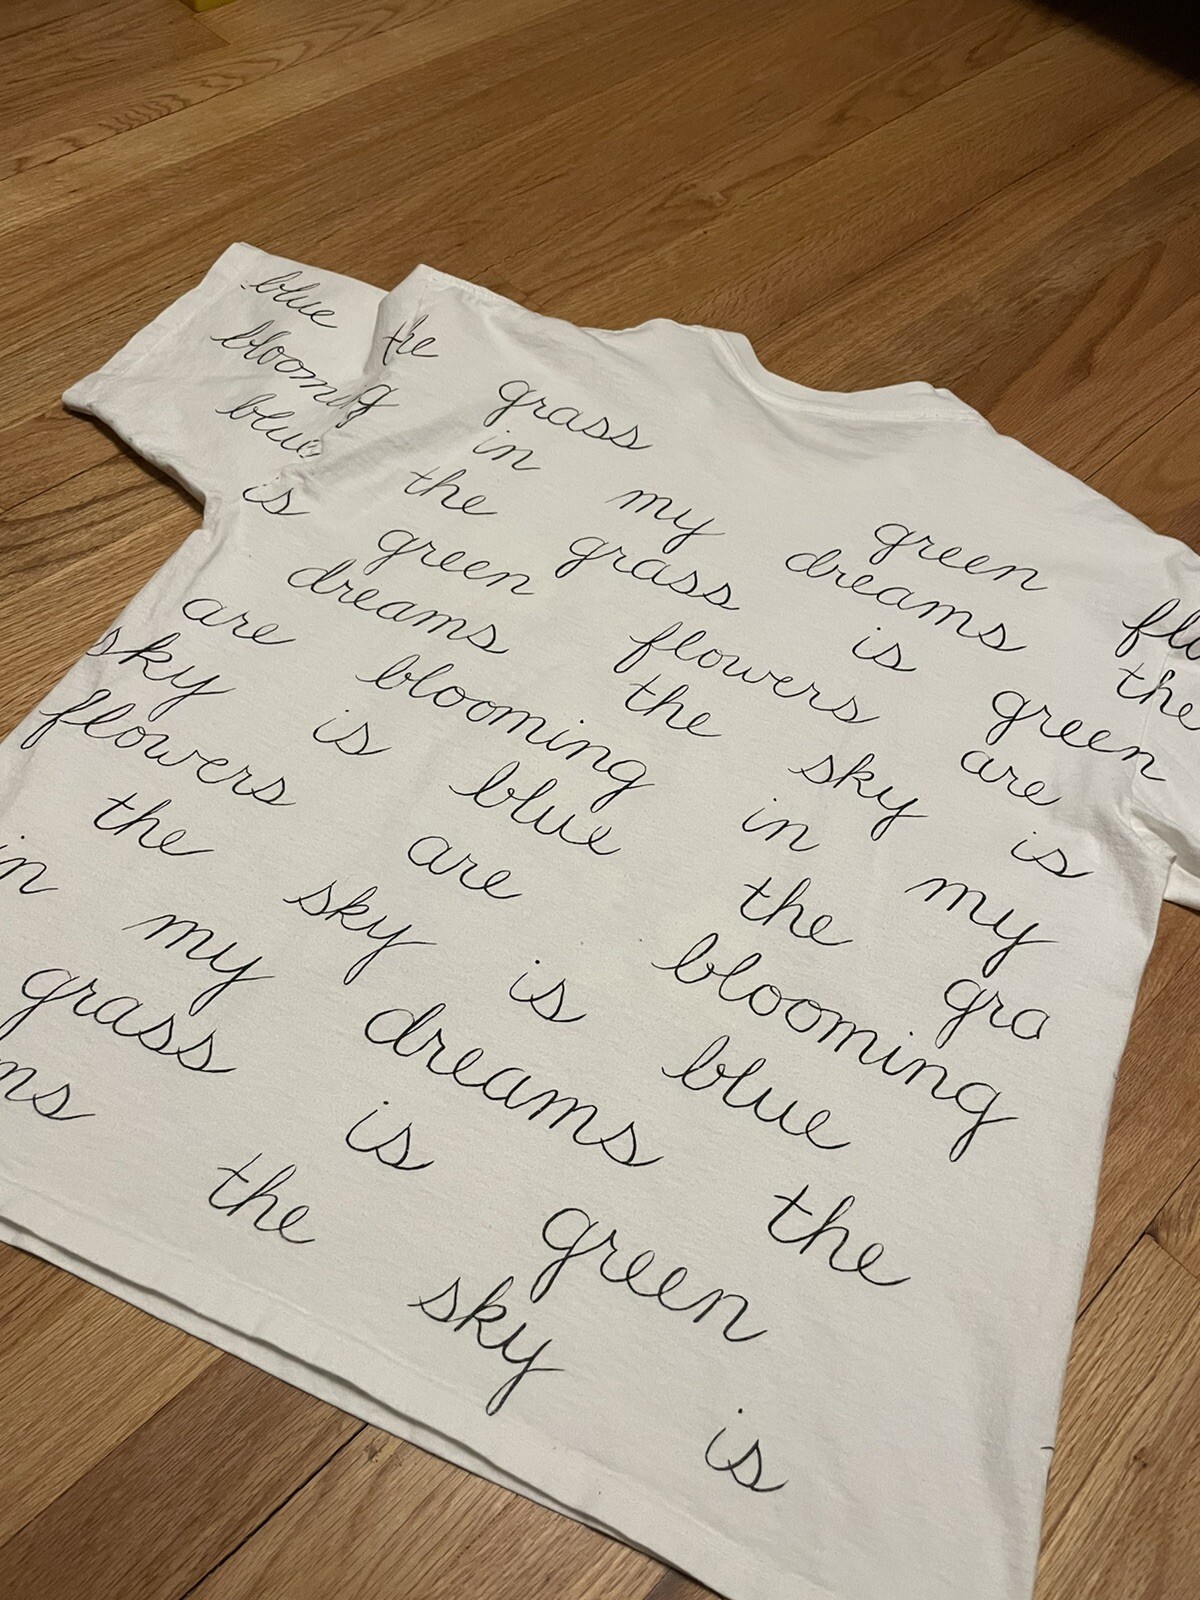 blue the grass green flo
blooming in my dreams the
blue the grass is green
is green flowers are
dreams the sky is
are blooming in my
sky is blue the gra
flowers are blooming
the sky is blue
in my dreams the
grass is green
ms the sky is